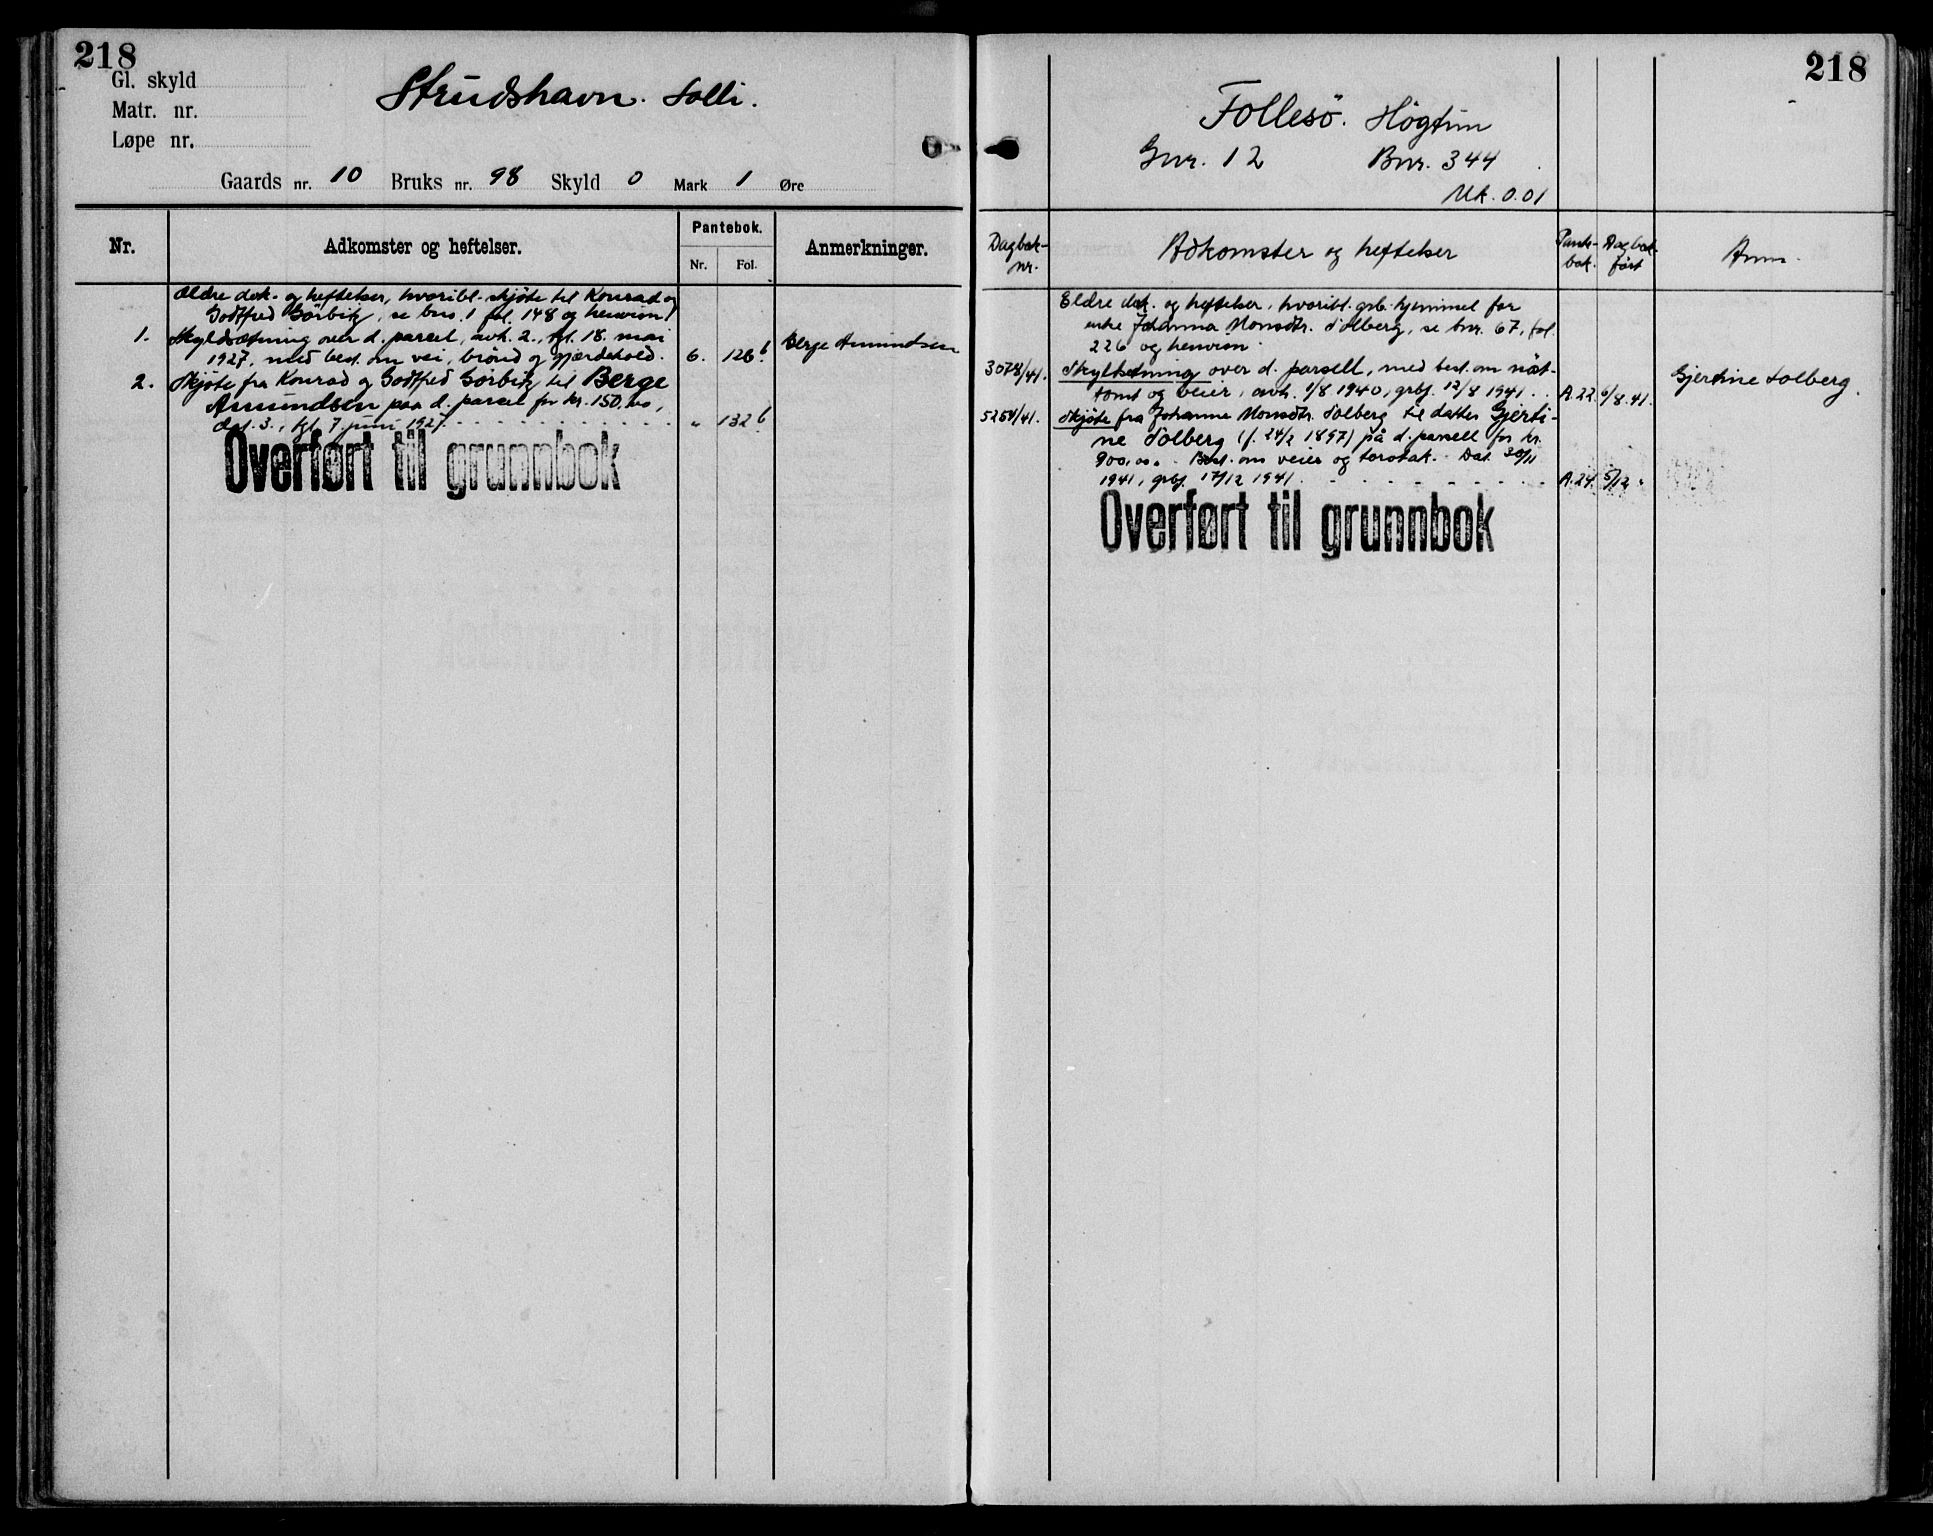 218
Gl. skyld
Matr. nr.
Løpe nr.
Strudshavn. Solli.
Gaards nr. 10 Bruks nr. 98 Skyld 0 Mark 1 Øre
Nr. Adkomster og heftelser. Pantebok. Anmerkninger.
Nr. Fol.
Ældre dok. og heftelser, hvoribl. skjøte til Konrad og
Godtfred Görbitz, se bno. 1 fol. 148 og henvisn!
1. Skyldsætning over d. parcel, avh. 2., tgl. 18. mai
1927, med best. om vei, brönd og gjærdehold. 6. 126b Berge Amundsen
2. Skjöte fra Konrad og Godtfred Görbitz til Berge
Amundsen paa d. parcel for kr. 150,00,
dat. 3., tgl. 7. juni 1927. " 132b
Overført til grunnbok
218
Follesö. Høgtun
Gnr. 12 Bnr. 344
Mk. 0.01
Dagbok- Adkomster og heftelser Pante- Dagbok- Anm.
nr. bok. ført
Eldre dok. og heftelser, hvoribl. grb. hjemmel for
enke Johanna Monsdtr. Solberg, se bnr. 67, fol.
226 og henvisn.
3078/41. Skyldsetning over d. parsell, med best. om nöst-
tomt og veier, avh. 1/8 1940, grbf. 12/8 1941. A.22. 6/8.41. Gjertine Solberg.
5254/41. Skjöte fra Johanna Monsdtr. Solberg til datter Gjerti-
ne Solberg (f. 24/2 1897) på d. parsell for kr.
900,00. Best. om veier og torvtak. Dat. 30/11
1941, grbf. 17/12 1941. A.24. 5/12 "
Overført til grunnbok